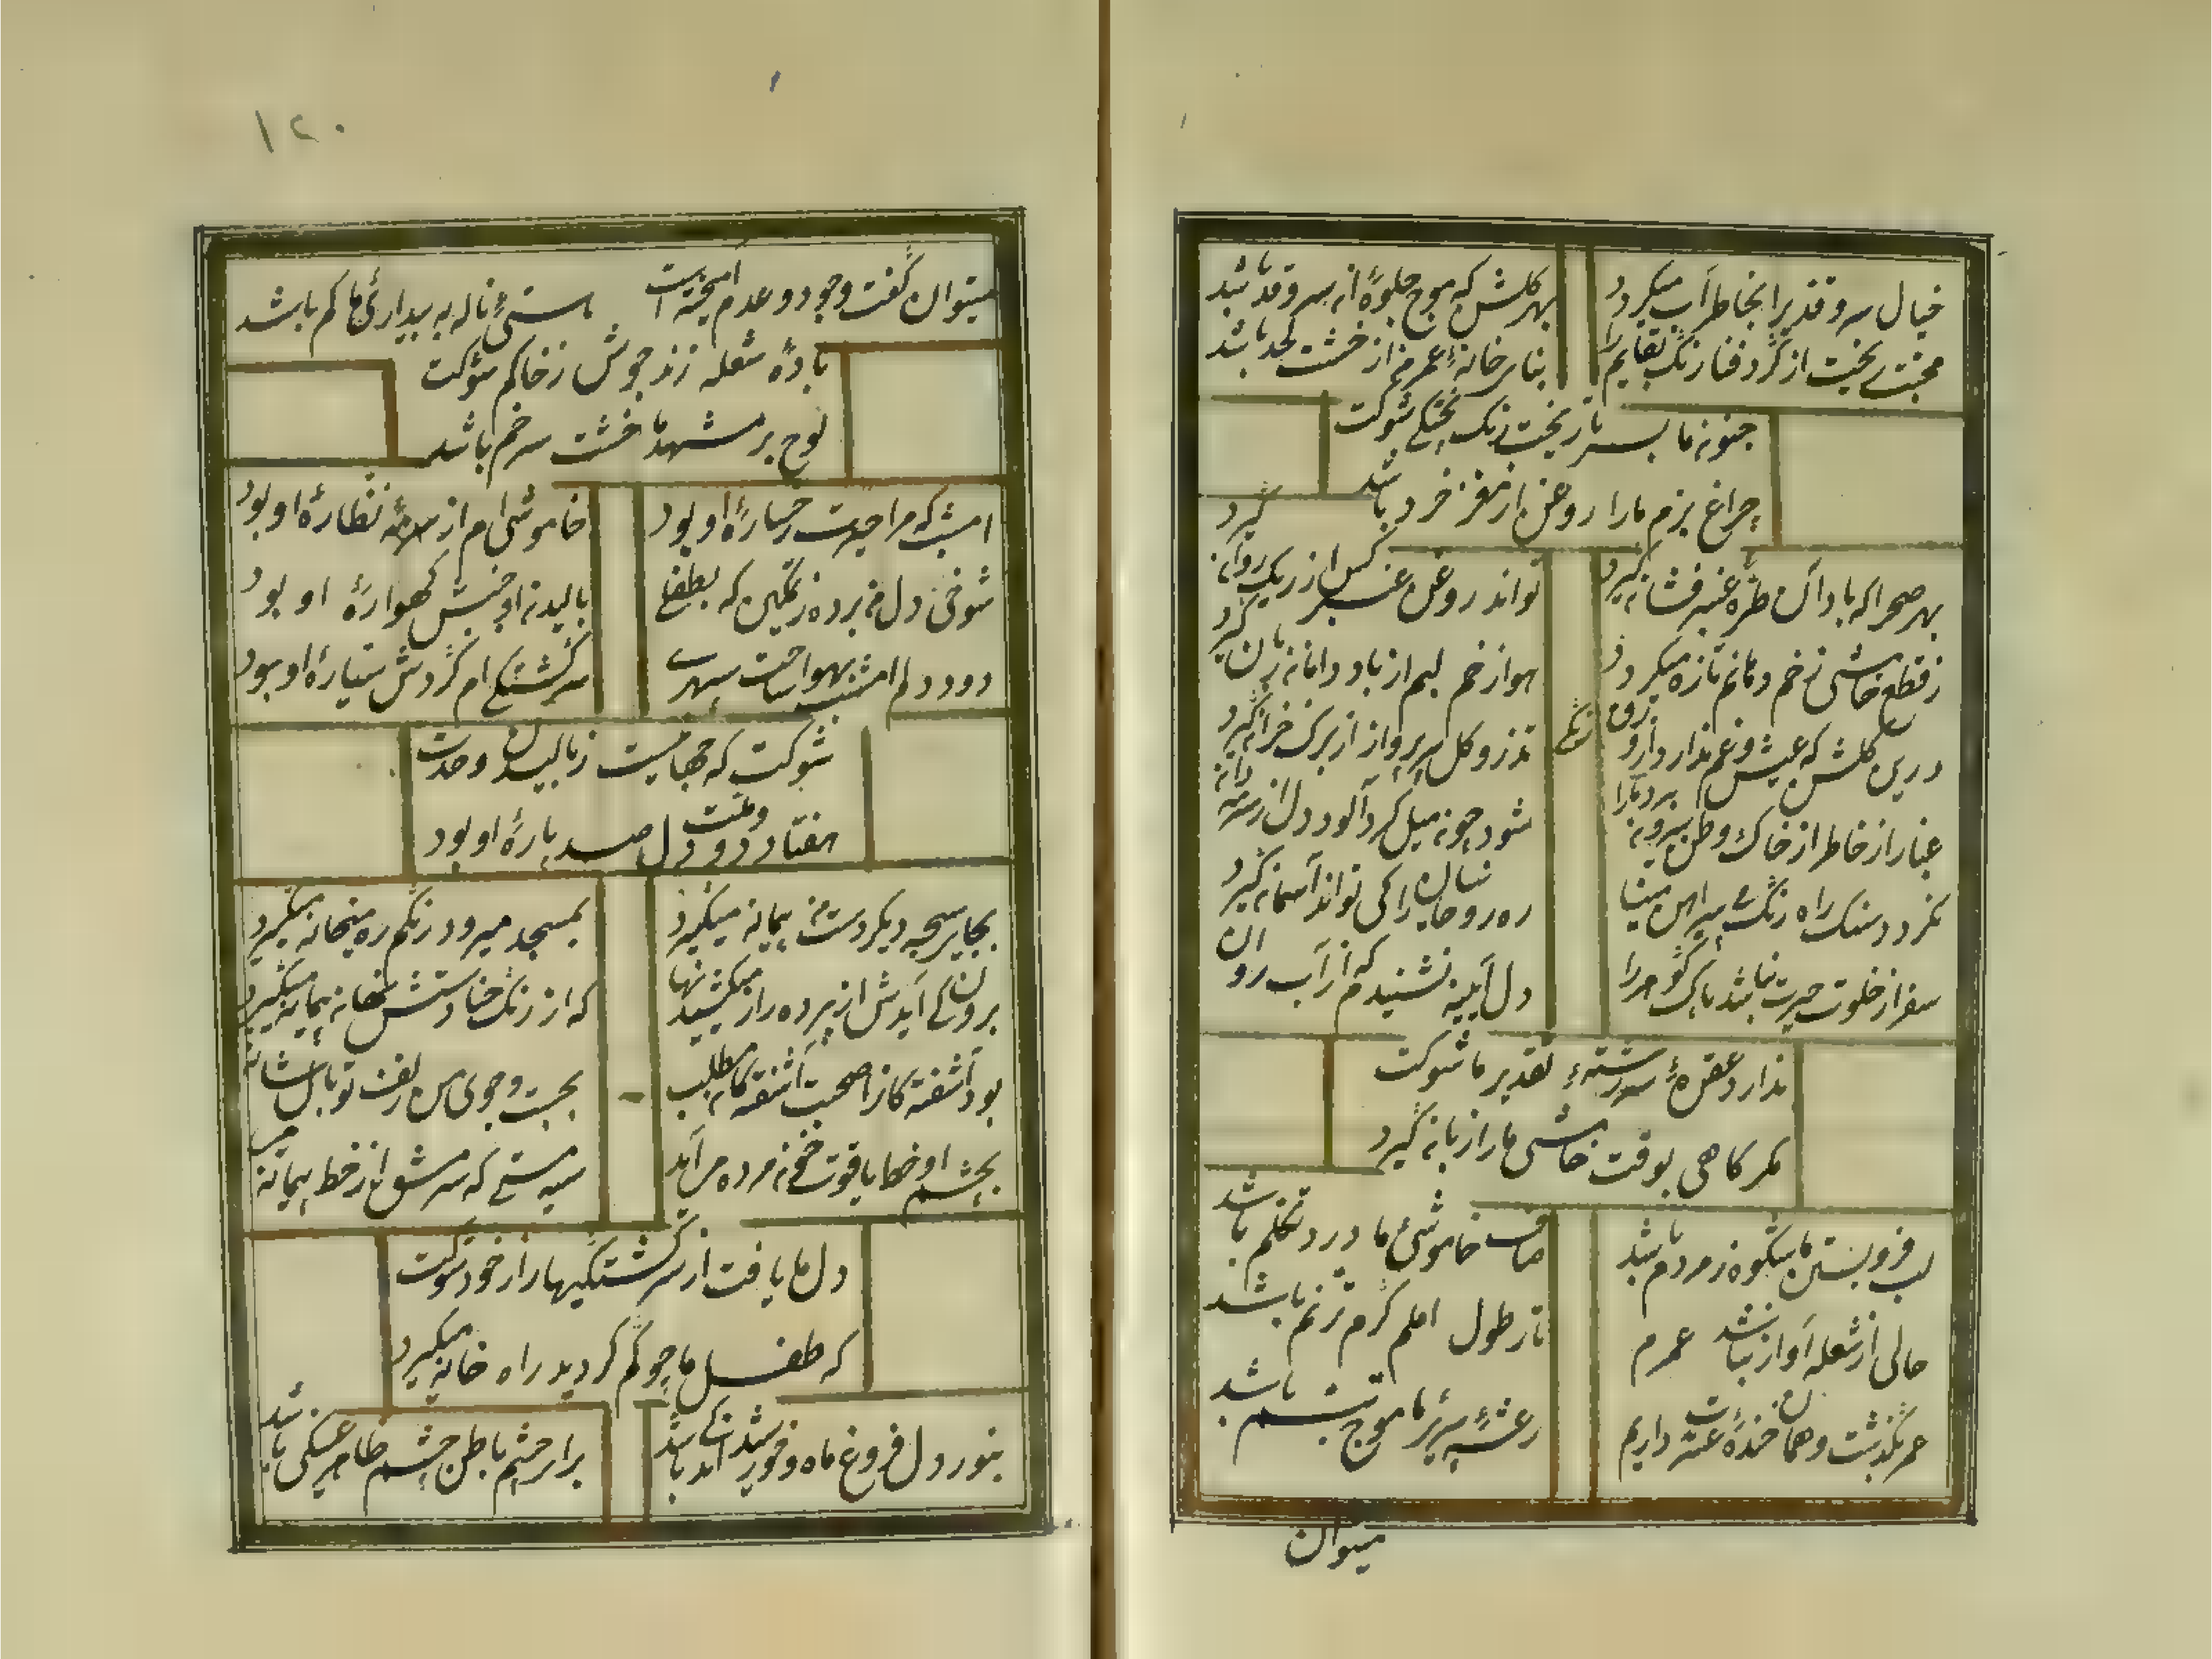 خیال سرو قدیرا بخاطر آب میکردد
بهر کلشن که موج جلوهٔ از سرو قد باشد
محبت ریخت از کرد فنا رنک بقایم را
بنای خانهٔ عمرم از خشت لحد باشد
جنون ما بسر باز ریخت رنک شوکت
چراغ بزم مارا روغن از مغز خرد باشد
بهر صحرا که باد آن طرهٔ عنبر فشان گیرد
تواند روغن عنبر کس از ریک روان گیرد
ز قطع خامشی زخم دهانم تازه میکردد
هوا زخم لبم از باد دامان زبان گیرد
درین کلشن که عیش و غم ندارد
تذرو کل پر پرواز از برک خزان گیرد
غبار از خاطر از خاک وطن بیرون برد مارا
شود چون میل کرد آلود دل از سرمه
نکردد سنک راه رنک پیراهن مینا
ره روحانیان را کی تواند آسمان گیرد
سفر از خلوت حیرت نباشد پاک گوهر را
دل آیینه نشنیدم که از آب روان
ندارد عقدهٔ سررشتهٔ تقدیر ما شوکت
مکر کاهی بوقت خامشی مارا زبان گیرد
لب فرو بستن ما شکوه ز مردم باشد
صاف خاموشیٔ ما درد تکلم باشد
خالی از شعله آواز نباشد عمرم
تار طول املم گرم ترنم باشد
عمر بگذشت و همان خندهٔ عشرت داریم
رعشهٔ پیری ما موج تبسم باشد
میتوان
۱۲۰
میتوان گفت وجود و عدم آمیخته است
هستیٔ ناله به بیداریٔ ما کم باشد
بادهٔ شعله زند جوش ز خاکم شوکت
لوح بر مشهد ما خشت سر خم باشد
امشب که مرا حیرت رخسارهٔ او بود
خاموشی ام از سرمهٔ نظارهٔ او بود
شوخی دل من برده ز تمکین که بطفلی
بالیدن او جنبش کهوارهٔ او بود
دود دلم امشب بهوا ساخت سپهری
سرگشتگی ام گردش سیارهٔ او بود
شوکت که جهانیست ز بالیدن وحدت
هفتاد و دو ملت دل صد پارهٔ او بود
بجای سبحه دیکر دست من پیمانه میگیرد
بمسجد میرود رنگم ره میخانه میگیرد
برون کی آیدش از پرده راز میکشیدنها
که از رنک حنا دستش نهان پیمانه میگیرد
بود آشفته کانرا صحبت آشفته کان مطلب
بجست و جوی من زلف تو بال شانه
بچشم او خط یاقوت خون مرده می آید
سیه مستی که سرمشق از خط پیمانه
دل ما یافت از سرگشتگیها راز خود شوکت
که طفل ما چو گم گردید راه خانه میگیرد
بنور دل فروغ ماه و خورشید اندکی باشد
برابر چشم باطن چشم ظاهر عینکی باشد